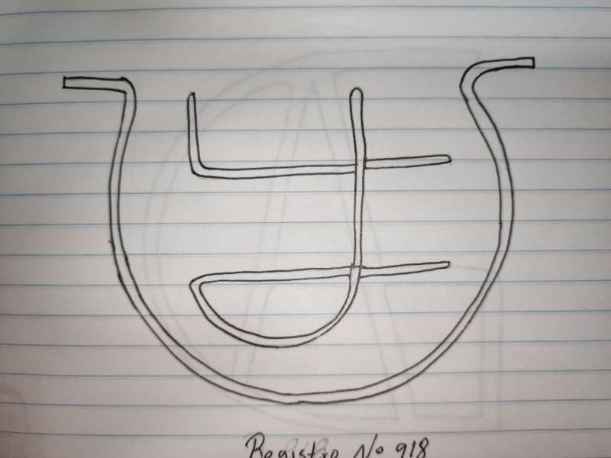 Registro No 918